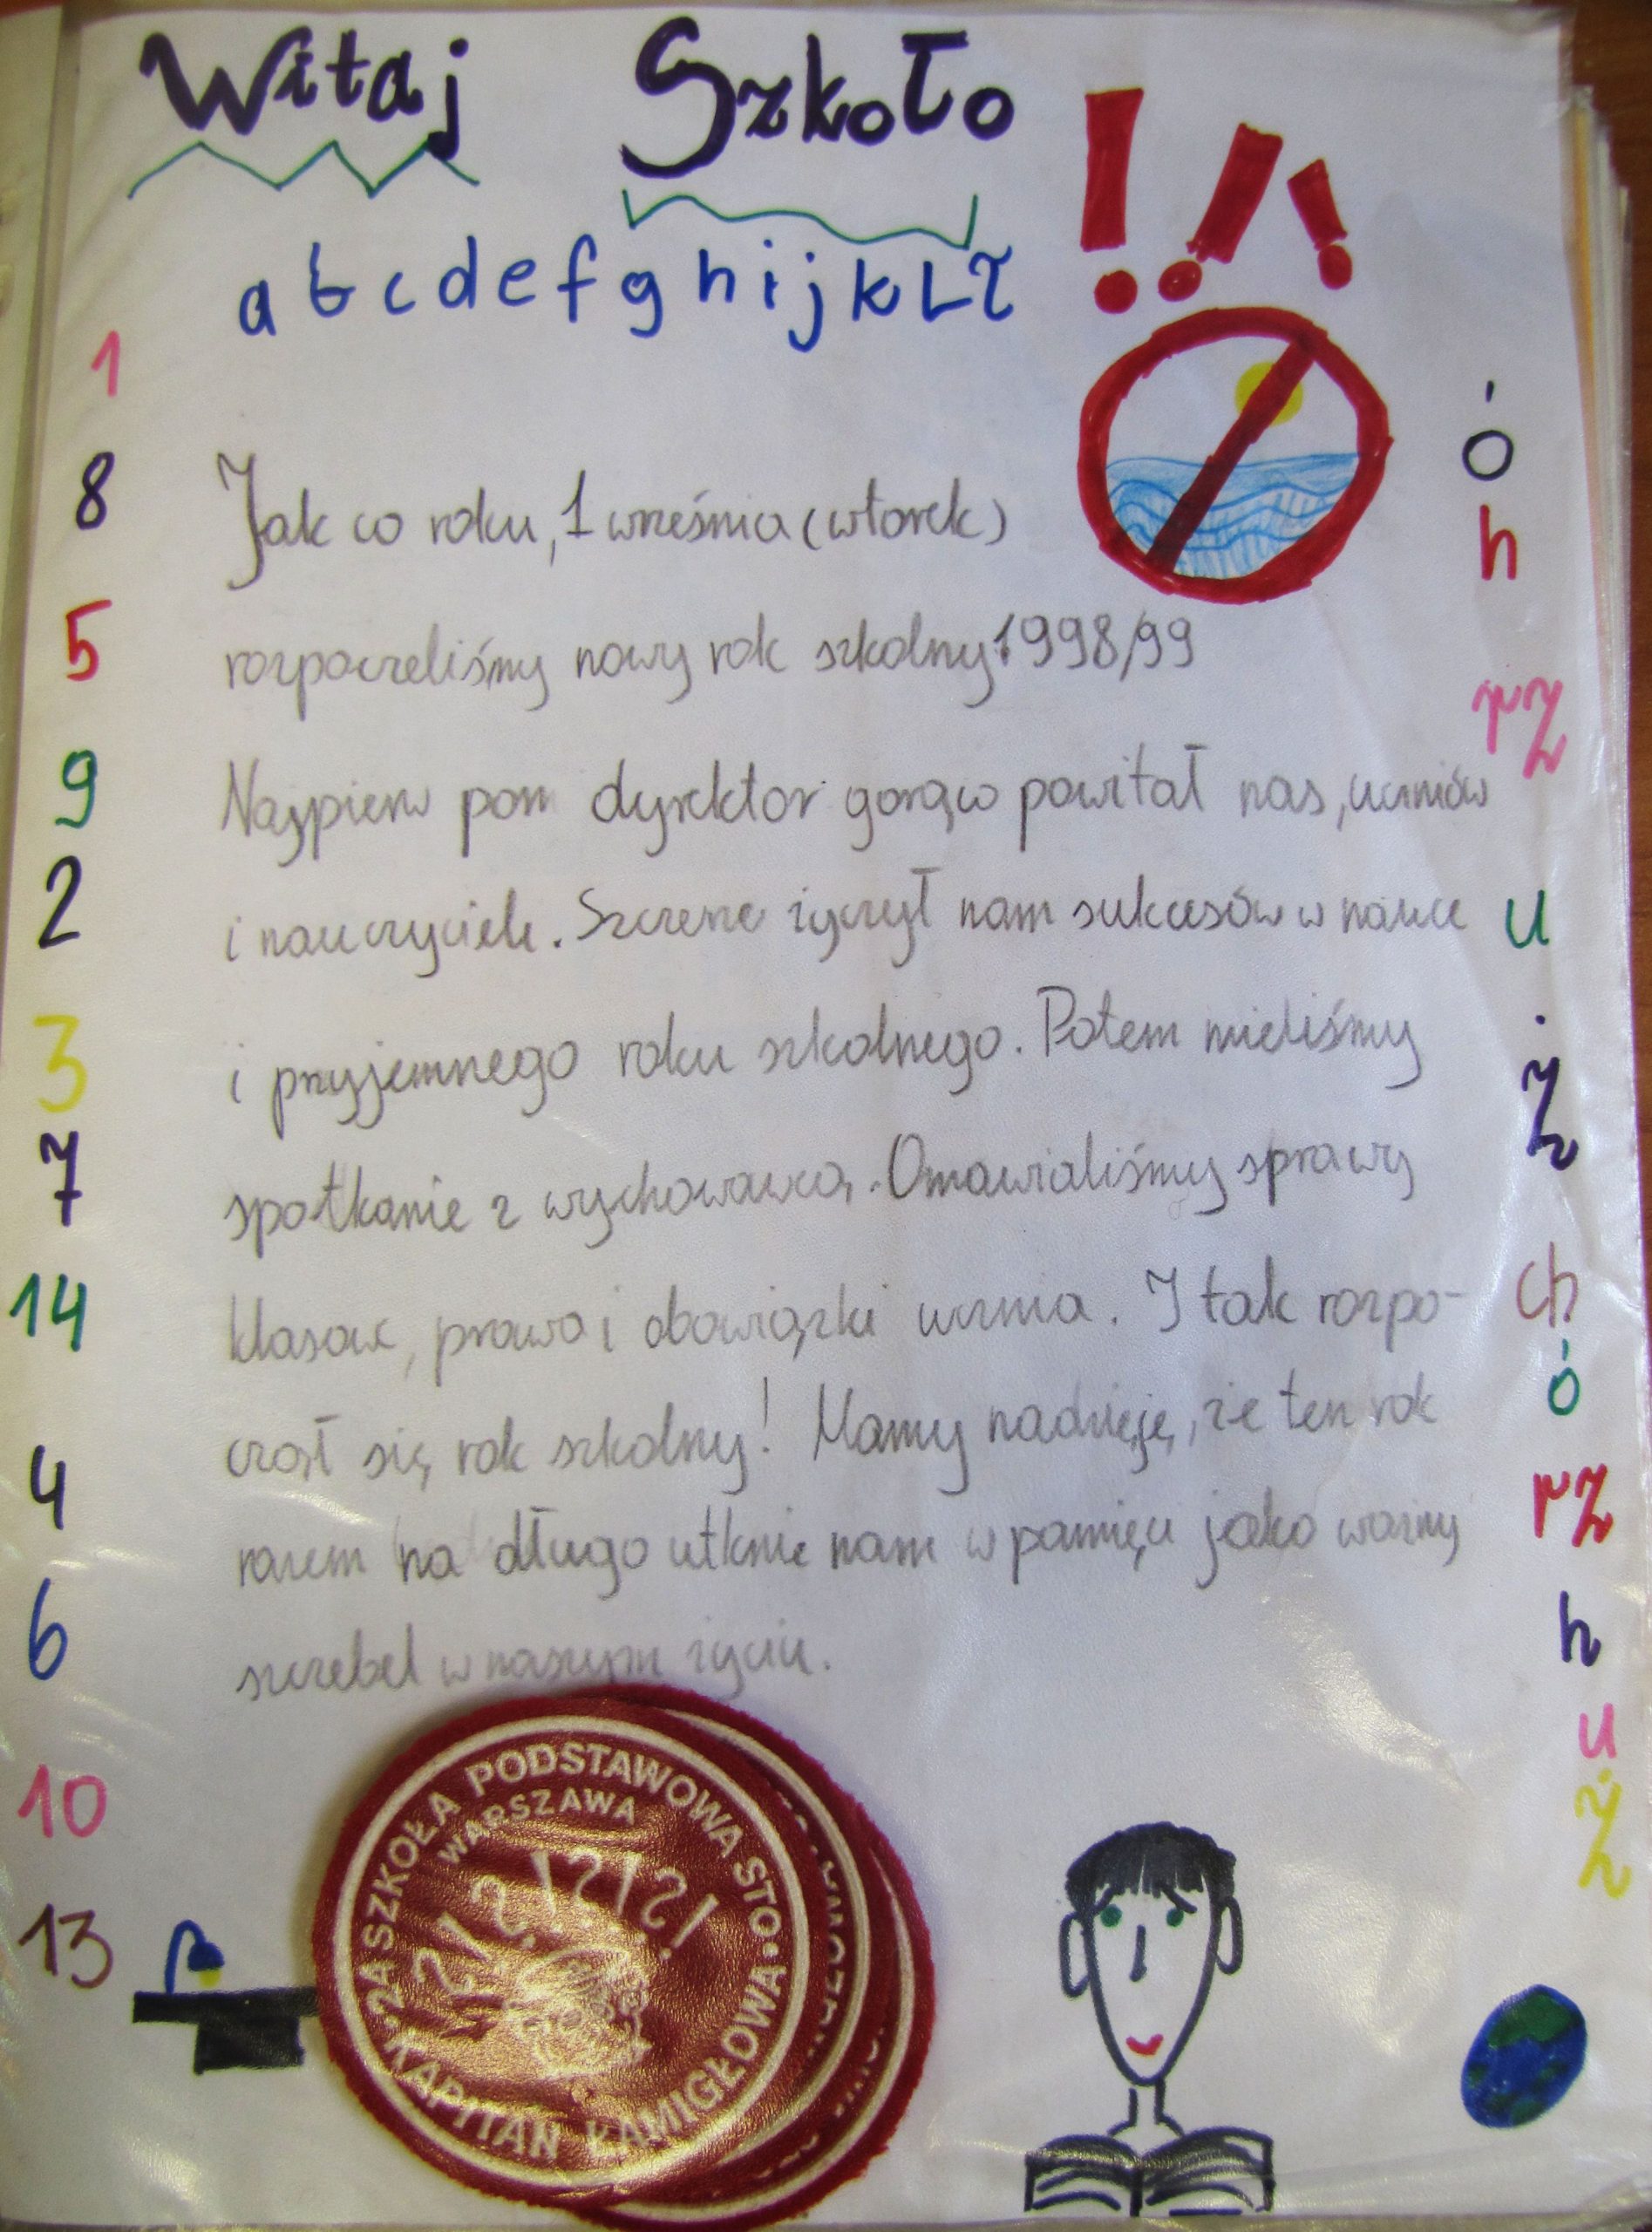 Witaj Szkoło !!!
a b c d e f g h i j k l ł
1
8
5
9
2
3
7
14
4
6
10
13
Jak co roku, 1 września (wtorek)
rozpoczeliśmy nowy rok szkolny 1998/99
Najpierw pan dyrektor gorąco powitał nas, uczniów
i nauczycieli. Szczerze życzył nam sukcesów w nauce
i przyjemnego roku szkolnego. Potem mieliśmy
spotkanie z wychowawcą. Omawialiśmy sprawy
klasowe, prawa i obowiązki ucznia. I tak rozpo-
czął się rok szkolny! Mamy nadzieję, że ten rok
razem na długo utknie nam w pamięci jako ważny
szczebel w naszym życiu.
ó
h
rz
u
ż
ch
ó
rz
h
u
ż
2A SZKOŁA PODSTAWOWA STO.
WARSZAWA
?!?!?!?!?!
KAPITAN ŁAMIGŁOWA.